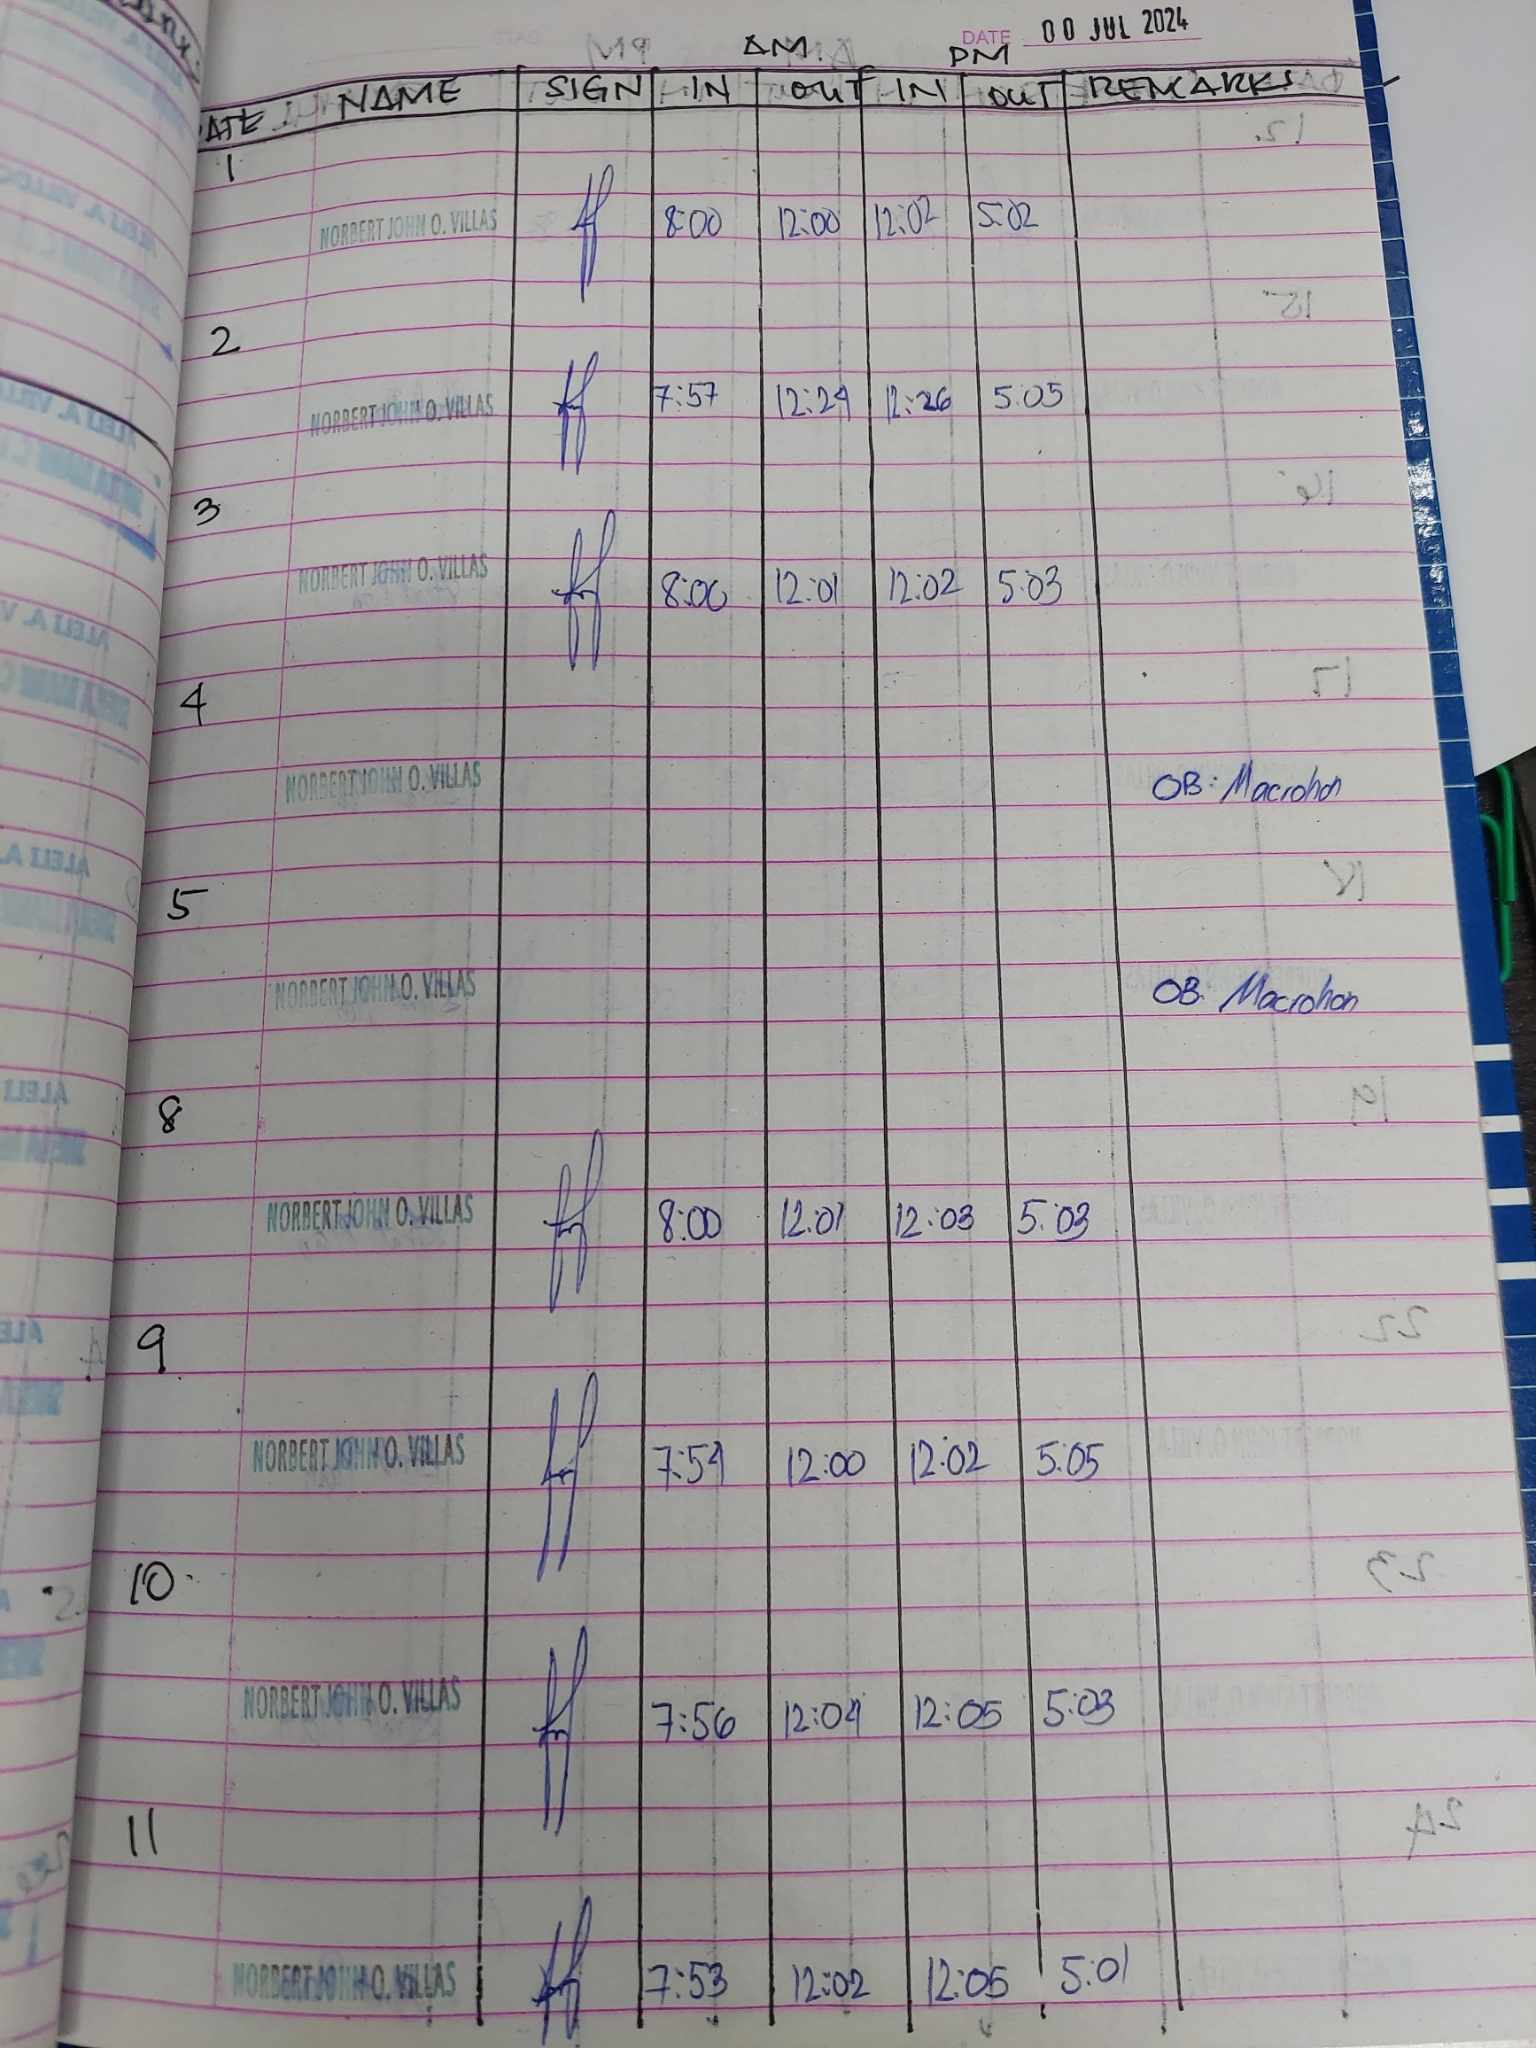 DATE 00 JUL 2024
AM. PM
DATE NAME SIGN IN OUT IN OUT REMARKS
1
NORBERT JOHN O. VILLAS 8:00 12:00 12:02 5:02
2
NORBERT JOHN O. VILLAS 7:57 12:24 12:26 5:05
3
NORBERT JOHN O. VILLAS 8:00 12:01 12:02 5:03
4
NORBERT JOHN O. VILLAS OB: Macrohon
5
NORBERT JOHN O. VILLAS OB: Macrohon
8
NORBERT JOHN O. VILLAS 8:00 12:01 12:03 5:03
9
NORBERT JOHN O. VILLAS 7:54 12:00 12:02 5:05
10
NORBERT JOHN O. VILLAS 7:56 12:04 12:05 5:03
11
NORBERT JOHN O. VILLAS 7:53 12:02 12:05 5:01